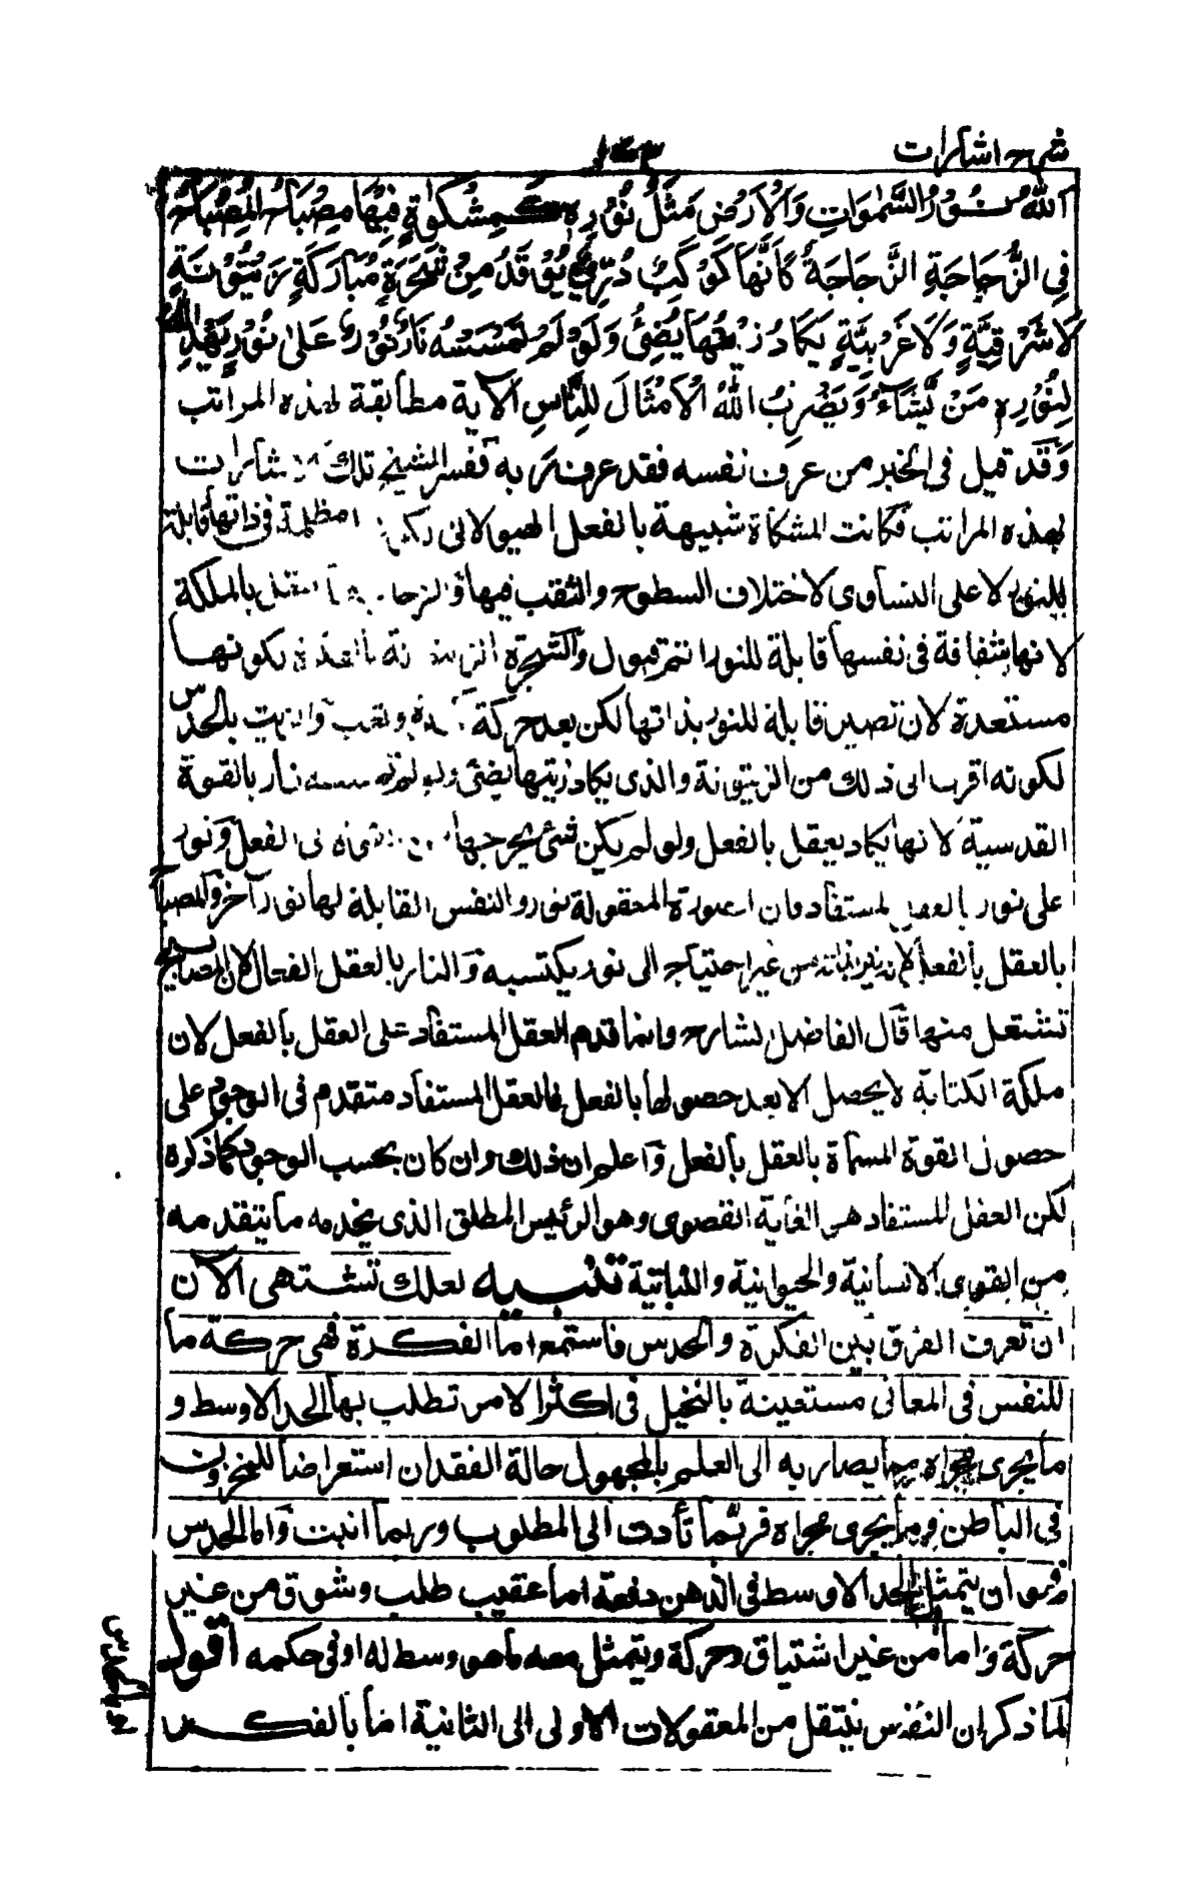 شرح اشارات
اللهُ نُوْرُ السَّمٰوَاتِ وَالْاَرْضِ مَثَلُ نُوْرِهٖ كَمِشْكٰوةٍ فِيْهَا مِصْبَاحٌ الْمِصْبَاحُ
فِى الزُّجَاجَةِ الزُّجَاجَةُ كَاَنَّهَا كَوْكَبٌ دُرِّىٌّ يُّوْقَدُ مِنْ شَجَرَةٍ مُبَارَكَةٍ زَيْتُوْنَةٍ
لَا شَرْقِيَّةٍ وَلَا غَرْبِيَّةٍ يَكَادُ زَيْتُهَا يُضِئُ وَلَوْ لَمْ تَمْسَسْهُ نَارٌ نُوْرٌ عَلٰى نُوْرٍ يَهْدِى اللهُ
لِنُوْرِهٖ مَنْ يَّشَآءُ وَيَضْرِبُ اللهُ الْاَمْثَالَ لِلنَّاسِ الآية مطابقة لهذه المراتب
وقد قيل فى الخبر من عرف نفسه فقد عرف ربه ففسر الشيخ تلك الاشارات
بهذه المراتب فكانت المشكاة شبيهة بالفعل الهيولانى مظلمة فى ذاتها قابلة
للنور لا على التساوى لاختلاف السطوح والثقب فيها والزجاجة بالعقل بالملكة
لانها شفافة فى نفسها قابلة للنور اتم قبول والشجرة الزيتونة بالفكرة لكونها
مستعدة لان تصير قابلة للنور بذاتها لكن بعد حركة كثيرة وتعب والزيت بالحدس
لكونه اقرب الى ذلك من الزيتونة والذى يكاد زيتها يضئ ولو لم تمسسه نار بالقوة
القدسية لانها يكاد يعقل بالفعل ولو لم يكن شئ يخرجها من القوة الى الفعل ونور
على نور بالعقل المستفاد فان الصورة المعقولة نور والنفس القابلة لها نور آخر والمصباح
بالعقل بالفعل لانه نير بذاته من غير احتياج الى نور يكتسبه والنار بالعقل الفعال لان المصابيح
تشتعل منها قال الفاضل الشارح وانما قدم العقل المستفاد على العقل بالفعل لان
ملكة الكتابة لا يحصل الا بعد حصولها بالفعل فالعقل المستفاد متقدم فى الوجود على
حصول القوة المسماة بالعقل بالفعل واعلم ان ذلك وان كان بحسب الوجود كما ذكره
لكن العقل المستفاد هى الغاية القصوى وهو الرئيس المطلق الذى يخدمه ما يتقدمه
من القوى الانسانية والحيوانية والنباتية تنبيه لعلك تشتهى الآن
ان تعرف الفرق بين الفكرة والحدس فاستمع اما الفكرة فهى حركة ما
للنفس فى المعانى مستعينة بالتخيل فى اكثر الامر تطلب بها الحد الاوسط و
ما يجرى مجراه مما يصار به الى العلم بالمجهول حالة الفقدان استعراضا للمخزون
فى الباطن وما يجرى مجراه فربما تأدت الى المطلوب وربما انبت واما الحدس
فهو ان يتمثل الحد الاوسط فى الذهن دفعة اما عقيب طلب وشوق من غير
حركة واما من غير اشتياق وحركة ويتمثل معه ما هو وسط له او فى حكمه اقول
لما ذكر ان النفس ينتقل من المعقولات الاولى الى الثانية اما بالفكر